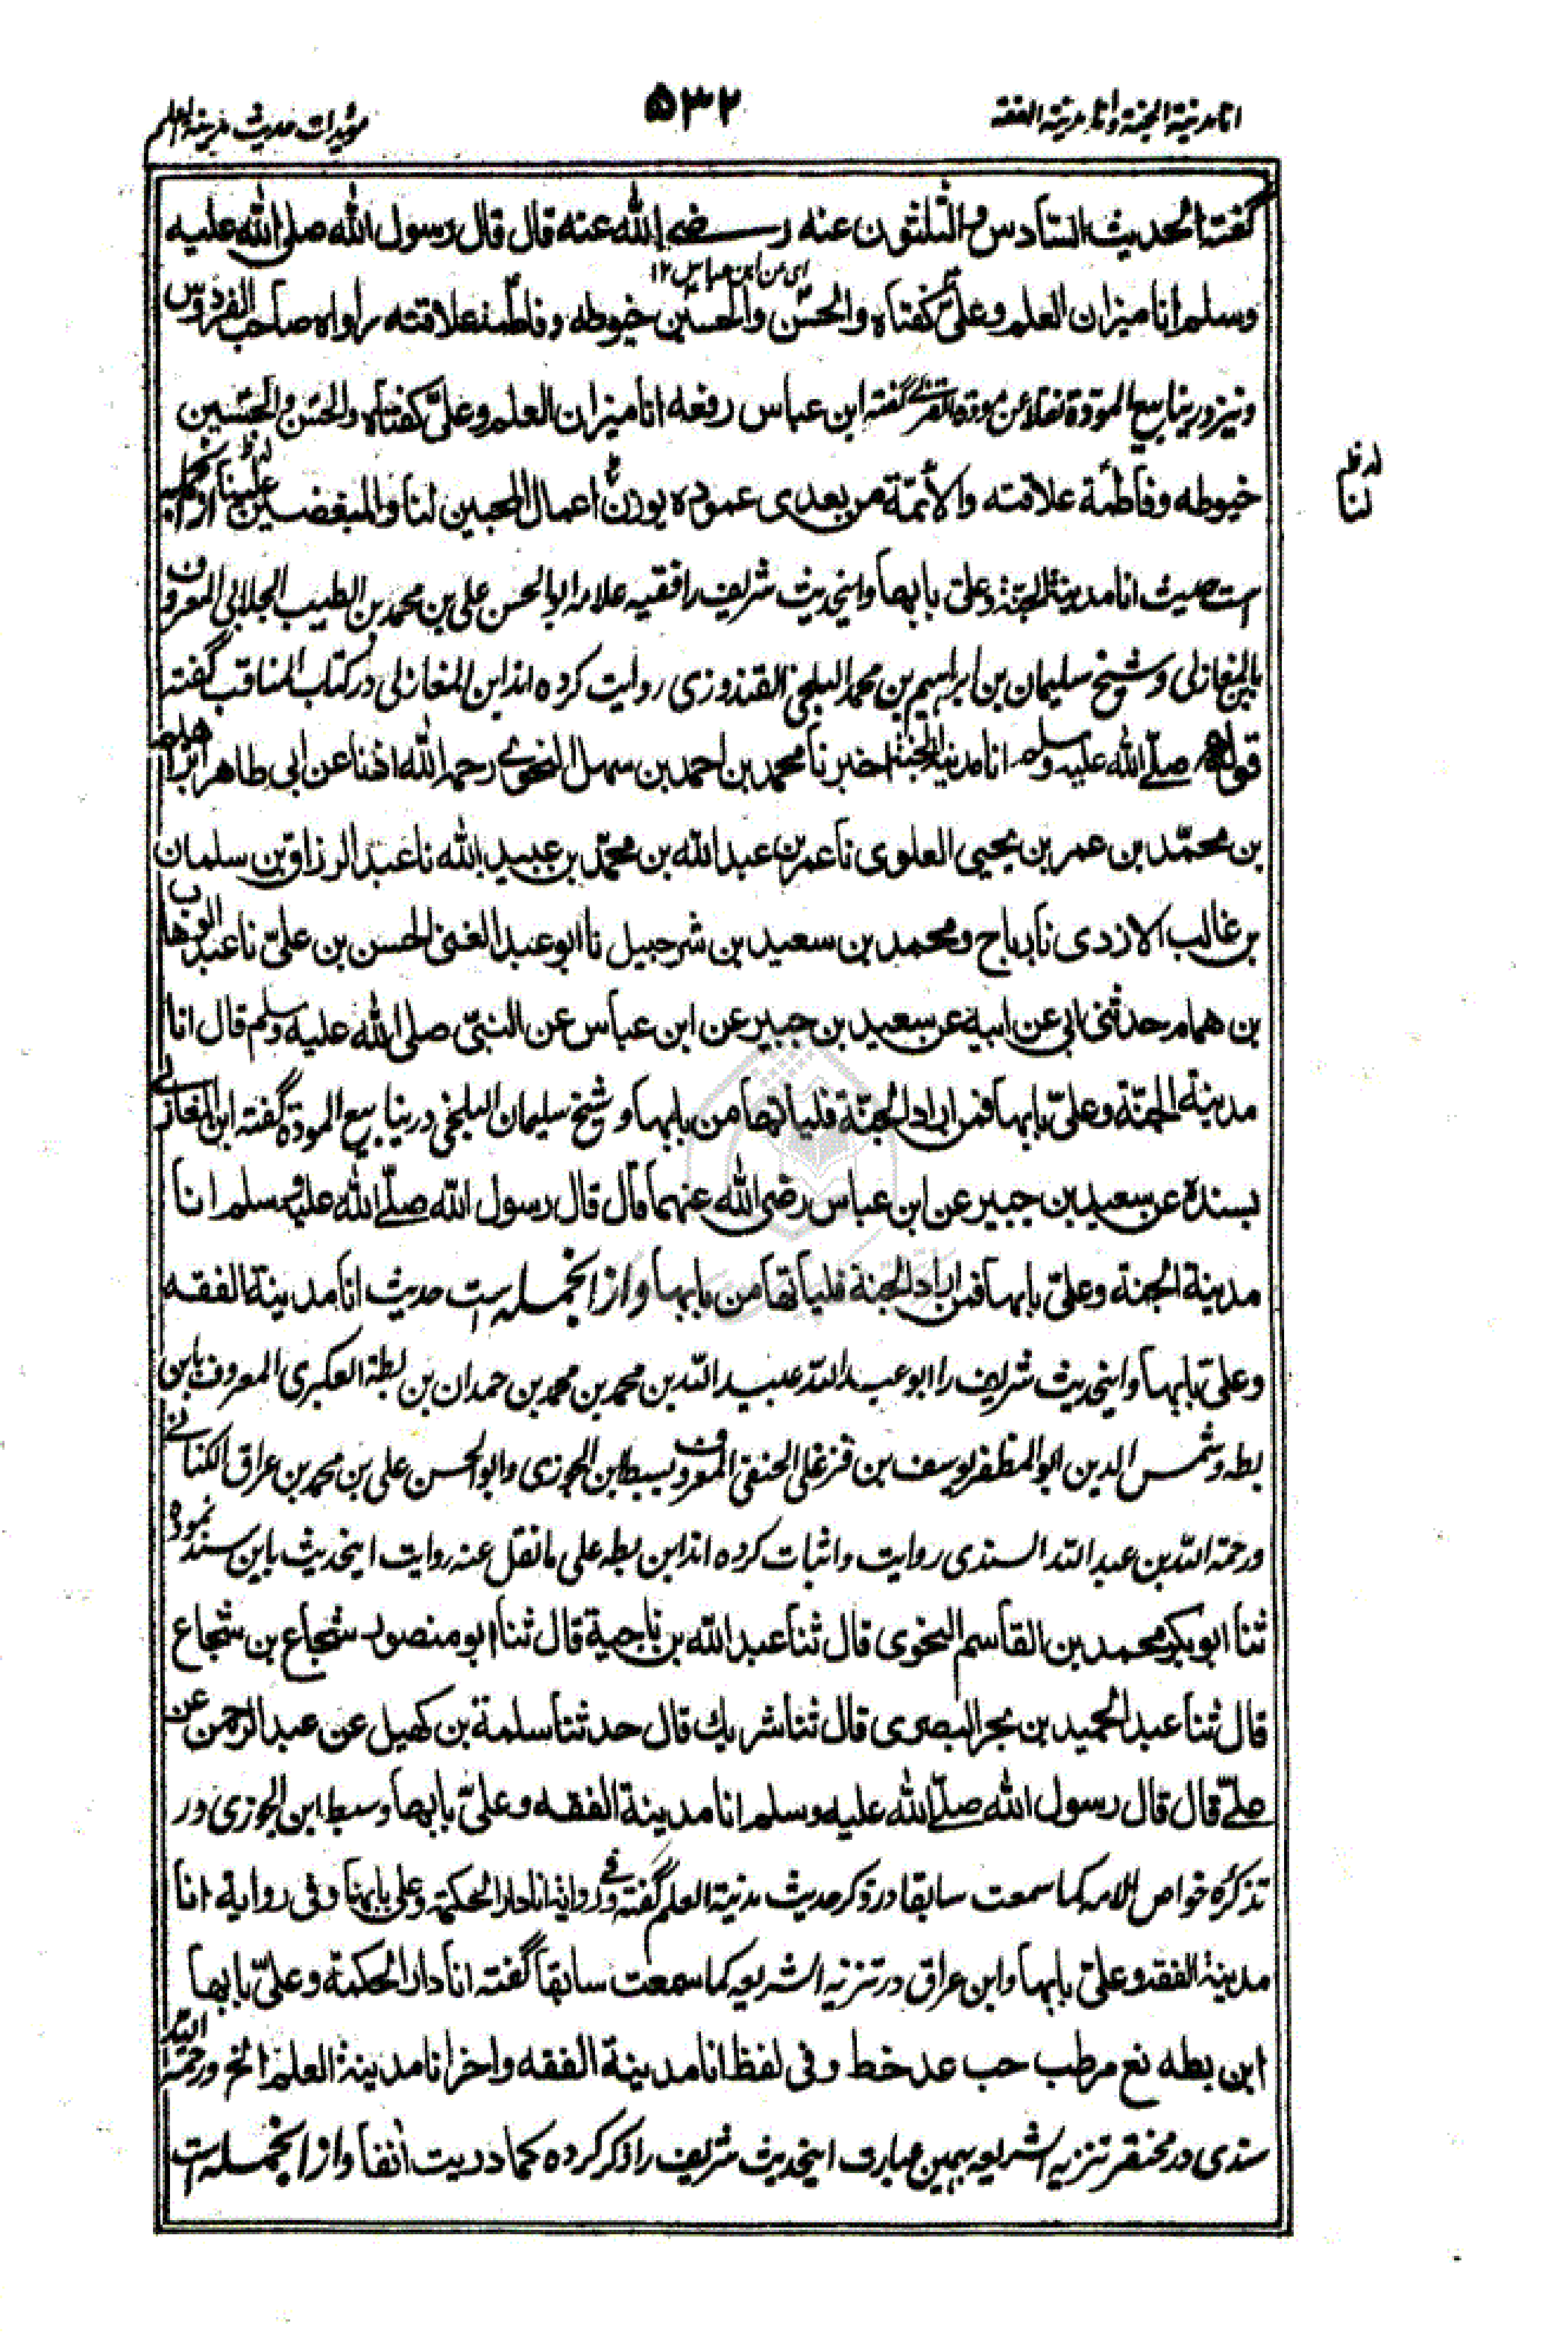 انا مدینة الجنة وانا مدینة الفقه
۵۳۲
مؤیدات حدیث مدینة العلم
گفته الحدیث السّادس و الثلثون عنه رضی الله عنه قال قال رسول الله صلی الله علیه
ای عن ابن عباس ۱۲
وسلم انا میزان العلم وعلیّ کفتاه والحسن والحسین خیوطه وفاطمة علاقته رواه صاحب الفردوس
ونیز در ینابیع المودة نقلا عن مودة القربی گفته ابن عباس رفعه انا میزان العلم وعلیّ کفتاه والحسن والحسین
خیوطه وفاطمة علاقته والأئمّة من بعدی عموده یوزن اعمال المحبین لنا والمبغضین علینا وازانجمله
لنا
است حدیث انا مدینة الجنة وعلیّ بابها واینحدیث شریف را فقیه علامه ابو الحسن علی بن محمد بن الطیب الجلابی المعروف
بابن المغازلی وشیخ سلیمان بن ابراهیم بن محمد البلخی القندوزی روایت کرده اند ابن المغازلی در کتاب المناقب گفته
قوله صلّی الله علیه وسلم انا مدینة الجنة اخبرنا محمد بن احمد بن سهل النحوی رحمه الله اذنا عن ابی طاهر ابراهیم
بن محمّد بن عمر بن یحیی العلوی نا عمر بن عبد الله بن محمّد بن عبید الله نا عبد الرزاق بن سلمان
بن غالب الازدی نا رباح ومحمد بن سعید بن شرحبیل نا ابو عبد الغنی الحسن بن علیّ نا عبد الوهاب
بن همام حدثنی ابی عن ابیه عن سعید بن جبیر عن ابن عباس عن النبیّ صلی الله علیه وسلم قال انا
مدینة الجنّة وعلیّ بابها فمن اراد الجنّة فلیاتها من بابها وشیخ سلیمان البلخی در ینابیع المودة گفته ابن المغازلی
بسنده عن سعید بن جبیر عن ابن عباس رضی الله عنهما قال قال رسول الله صلّی الله علیه وسلم انا
مدینة الجنة وعلیّ بابها فمن اراد الجنة فلیاتها من بابها وازانجمله است حدیث انا مدینة الفقه
وعلیّ بابها واینحدیث شریف را ابو عبد الله عبید الله بن محمد بن محمد بن حمدان بن بطة العکبری المعروف بابن
بطه وشمس الدین ابو المظفر یوسف بن قزغلی الحنفی المعروف بسبط ابن الجوزی وابو الحسن علی بن محمد بن عراق الکنانی
ورحمة الله بن عبد الله السندی روایت واثبات کرده اند ابن بطه علی ما نقل عنه روایت اینحدیث باین سند نموده
ثنا ابو بکر محمد بن القاسم النحوی قال ثنا عبد الله بن ناجیة قال ثنا ابو منصور شجاع بن شجاع
قال ثنا عبد الحمید بن بحر البصری قال ثنا شریك قال حدثنا سلمة بن کهیل عن عبد الرحمن عن
علیّ قال قال رسول الله صلّی الله علیه وسلم انا مدینة الفقه وعلیّ بابها وسبط ابن الجوزی در
تذکرة خواص الامه کما سمعت سابقا در ذکر حدیث مدینة العلم گفته وفی روایة انا دار الحکمة وعلی بابها وفی روایة انا
مدینة الفقه وعلیّ بابها وابن عراق در تنزیه الشریعه کما سمعت سابقا گفته انا دار الحکمة وعلیّ بابها
ابن بطه نع مر طب حب عد خط وفی لفظ انا مدینة الفقه واخر انا مدینة العلم الخ ورحمة الله
سندی در مختصر تنزیه الشریعه بهمین عبارت اینحدیث شریف را ذکر کرده کما دریت انفا وازانجمله است